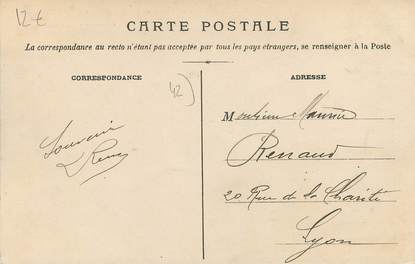 12€
CARTE POSTALE
La correspondance au recto n'étant pas acceptée par tous les pays étrangers, se renseigner à la Poste
CORRESPONDANCE
ADRESSE
42
Monsieur Maurice
Souvenir
Renaud
20 Rue de la Charité
Lyon